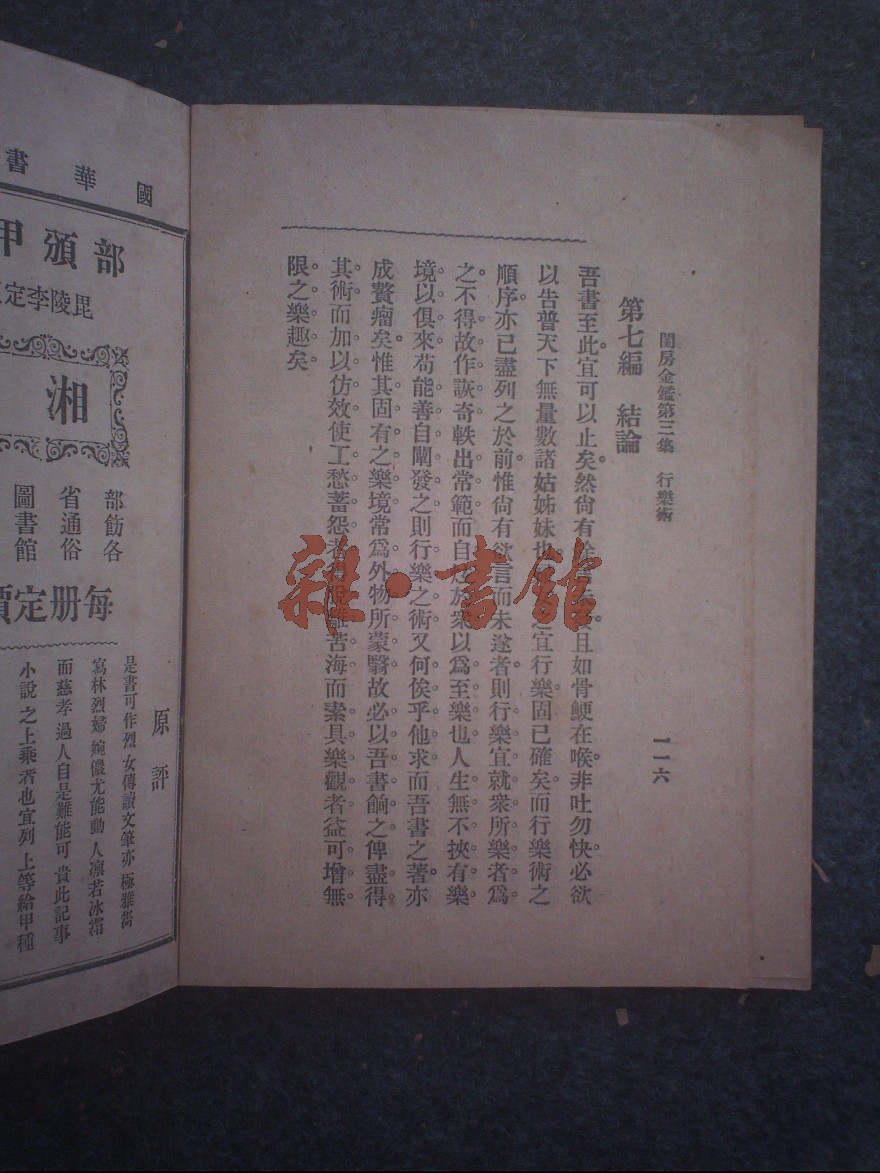 閨房金鑑第三集　行樂術
一一六
第七編　結論
吾書至此宜可以止矣。然尙有 且如骨鯁在喉非吐勿快必欲
以告普天下無量數諸姑姊妹也 之宜行樂固已確矣而行樂術之
順序亦已盡列之於前惟尙有欲言而未遂者則行樂宜就衆所樂者爲
之不得故作詼奇軼出常範而自 於衆以爲至樂也人生無不挾有樂
境以俱來苟能善自闡發之則行樂之術又何俟乎他求而吾書之著亦
成贅瘤矣。惟其固有之樂境常爲外物所蒙翳故必以吾書餉之俾盡得
其術而加以仿效使工愁蓄怨者 離苦海而素具樂觀者益可增無
限之樂趣矣
雜·書館
國華書
部頒甲
毘陵李定
湘
部飭各
省通俗
圖書館
每册定價
原評
是書可作烈女傳讀文筆亦極雅雋
寫林烈婦婉儂尤能動人凛若冰霜
而慈孝過人自是難能可貴此記事
小說之上乘者也宜列上等給甲種